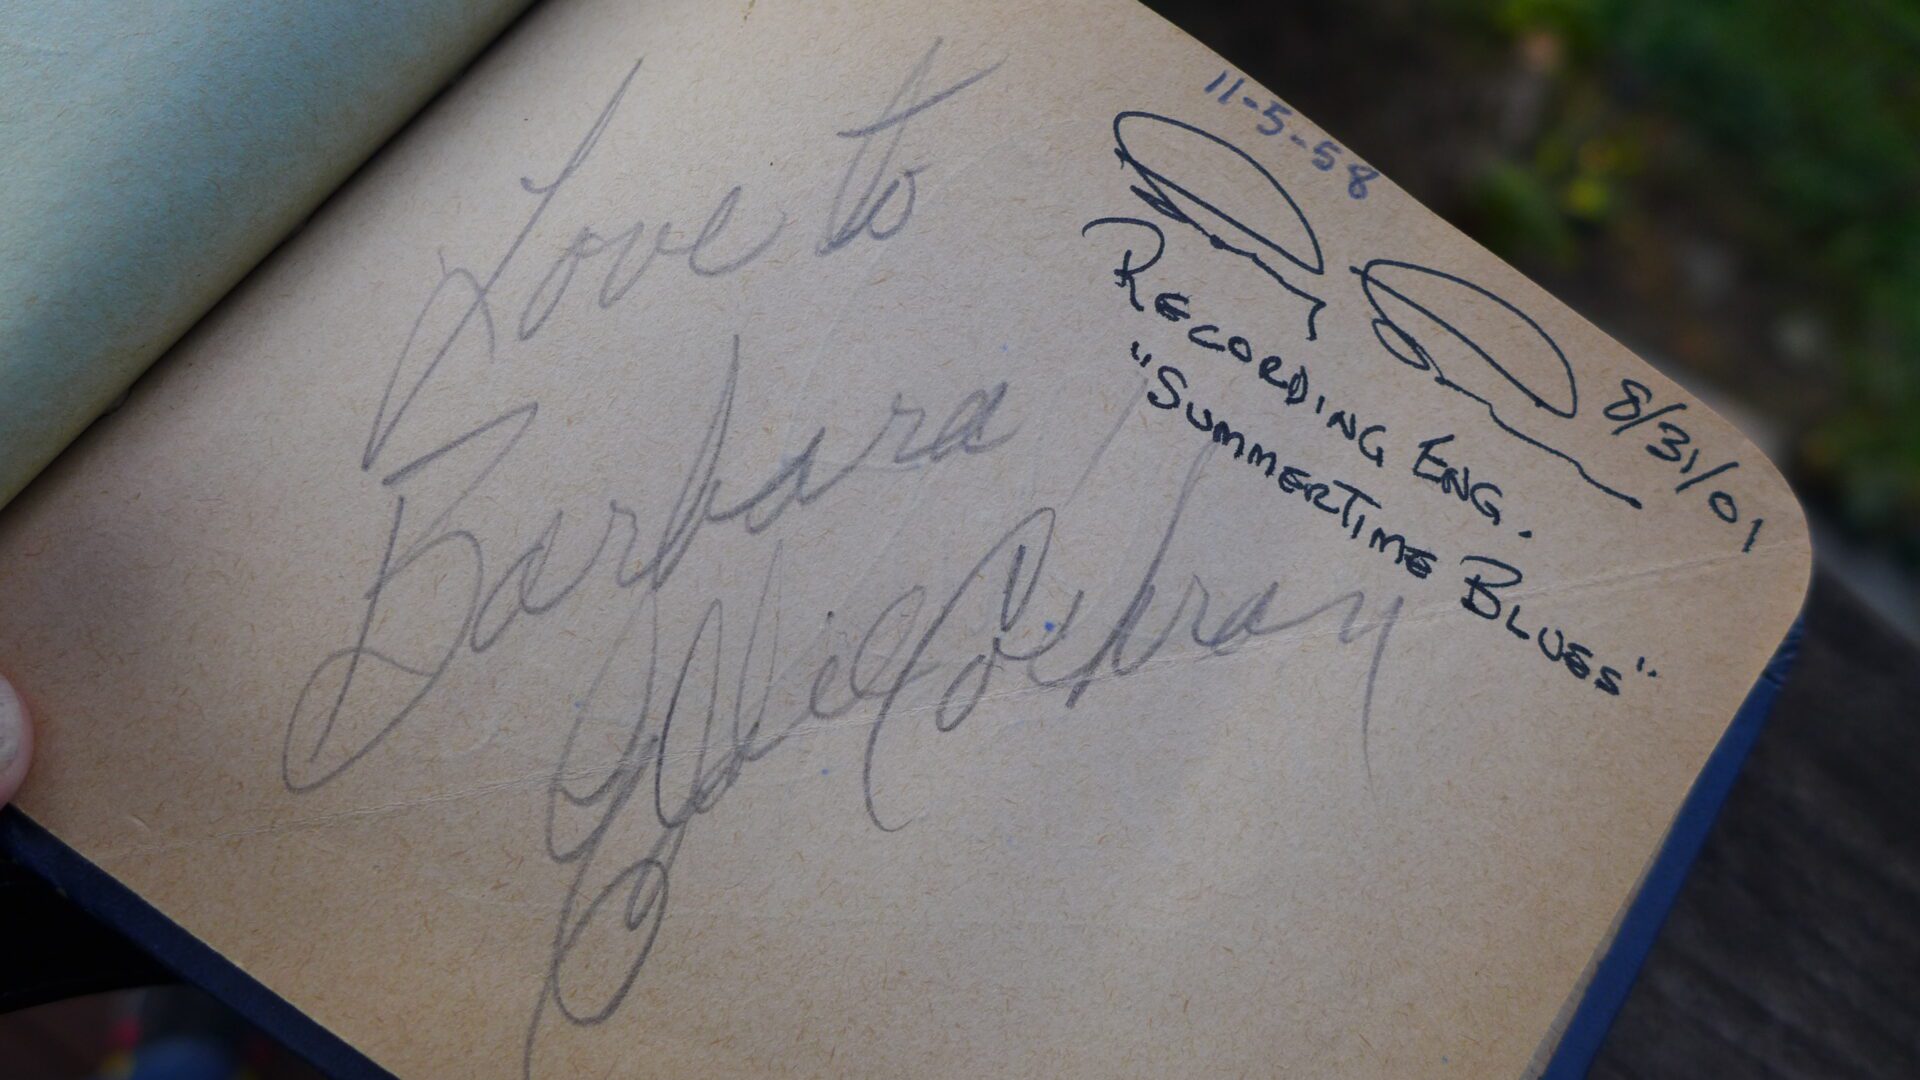 Love to
Barbara
Eddie Cochran
11-5-58
8/31/01
RECORDING ENG.
"SUMMERTIME BLUES"